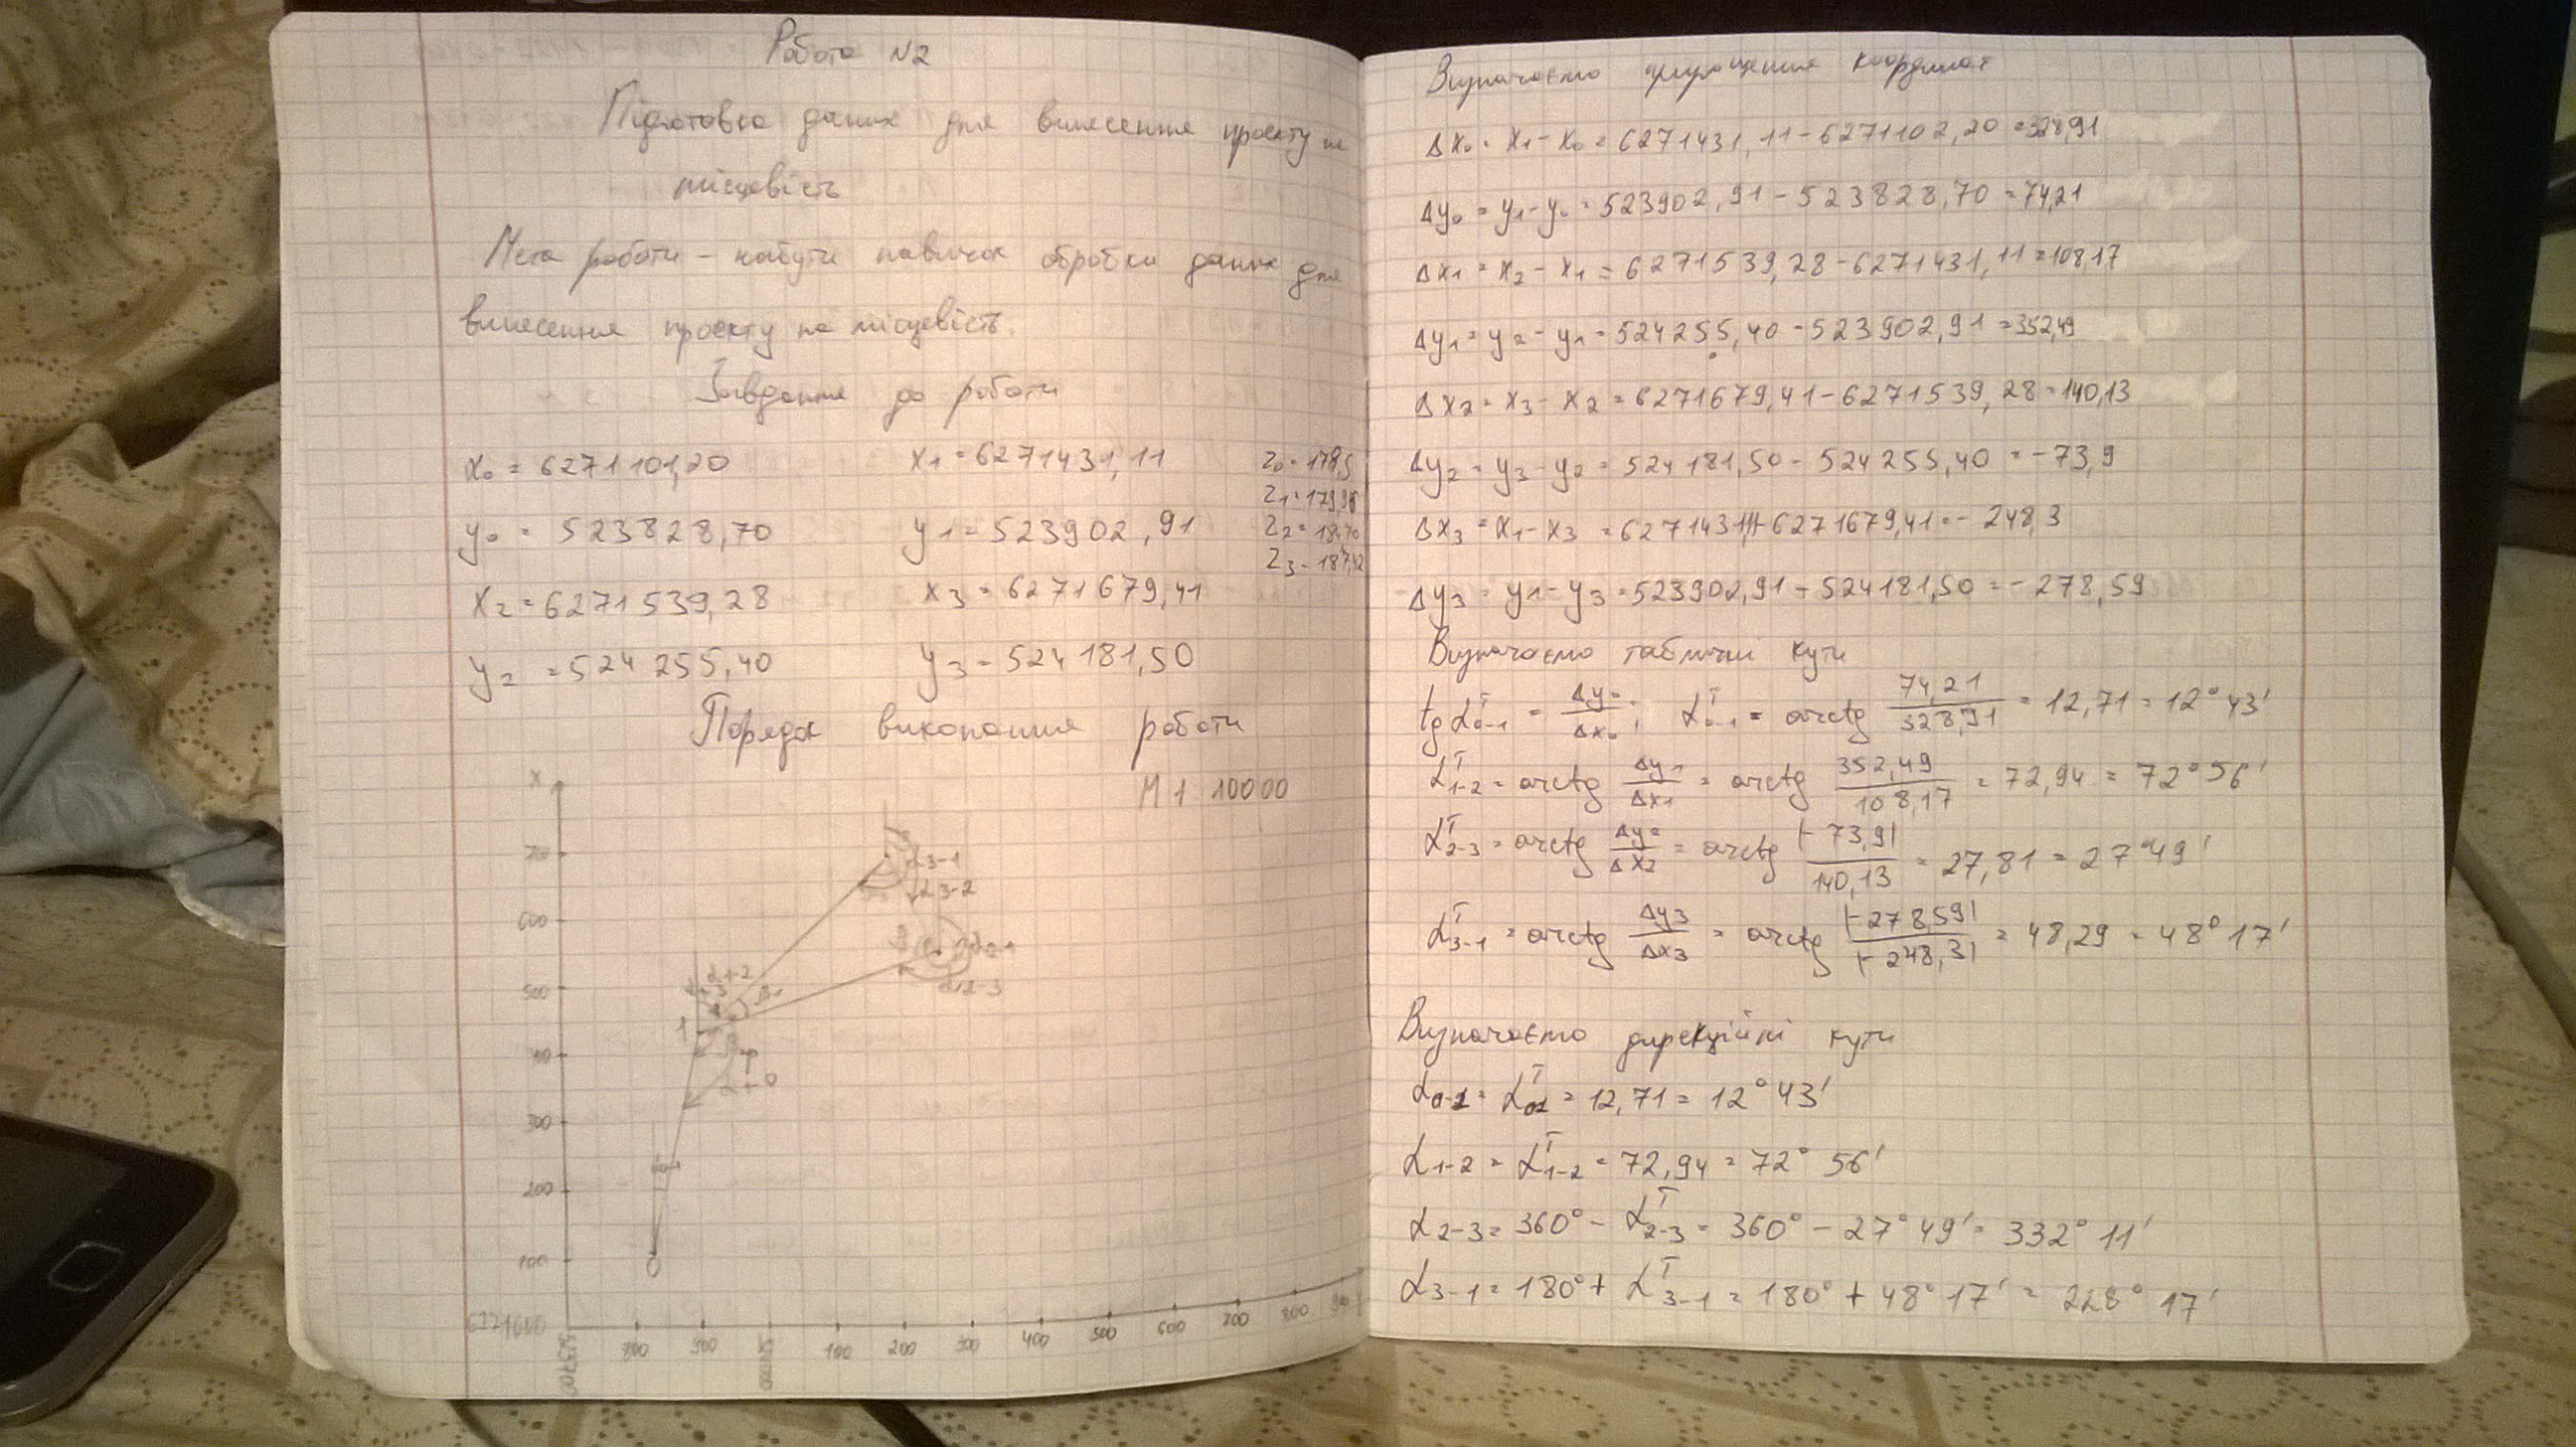 Робота N2
Підготовка даних для винесення проекту на
місцевість
Мета роботи – набути навичок обробки даних для
винесення проекту на місцевість.
Завдання до роботи
x₀ = 6271101,20 x₁ = 6271431,11 z₀ = 178,5
z₁ = 179,96
y₀ = 523828,70 y₁ = 523902,91 z₂ = 18,70
z₃ = 187,12
x₂ = 6271539,28 x₃ = 6271679,41
y₂ = 524255,40 y₃ = 524181,50
Порядок виконання роботи
М 1 10000
x
700
600
500
400
300
200
100
6271000
523700
800
900
524000
100
200
300
400
500
600
700
800
90
α3-1
α3-2
α1-2
β1
α2-3
1
0
Визначаємо прирощення координат
Δx₀ = x₁ – x₀ = 6271431,11 – 6271102,20 = 328,91
Δy₀ = y₁ – y₀ = 523902,91 – 523828,70 = 74,21
Δx₁ = x₂ – x₁ = 6271539,28 – 6271431,11 = 108,17
Δy₁ = y₂ – y₁ = 524255,40 – 523902,91 = 352,49
Δx₂ = x₃ – x₂ = 6271679,41 – 6271539,28 = 140,13
Δy₂ = y₃ – y₂ = 524181,50 – 524255,40 = –73,9
Δx₃ = x₁ – x₃ = 6271431,11 – 6271679,41 = –248,3
Δy₃ = y₁ – y₃ = 523902,91 – 524181,50 = –278,59
Визначаємо табличні кути
tg αᵀ₀₋₁ = Δy₀/Δx₀; αᵀ₀₋₁ = arctg 74,21/328,91 = 12,71 = 12°43'
αᵀ₁₋₂ = arctg Δy₁/Δx₁ = arctg 352,49/108,17 = 72,94 = 72°56'
αᵀ₂₋₃ = arctg Δy₂/Δx₂ = arctg |–73,9|/140,13 = 27,81 = 27°49'
αᵀ₃₋₁ = arctg Δy₃/Δx₃ = arctg |–278,59|/|–248,3| = 48,29 = 48°17'
Визначаємо дирекційні кути
α₀₋₁ = αᵀ₀₁ = 12,71 = 12°43'
α₁₋₂ = αᵀ₁₋₂ = 72,94 = 72°56'
α₂₋₃ = 360° – αᵀ₂₋₃ = 360° – 27°49' = 332°11'
α₃₋₁ = 180° + αᵀ₃₋₁ = 180° + 48°17' = 228°17'